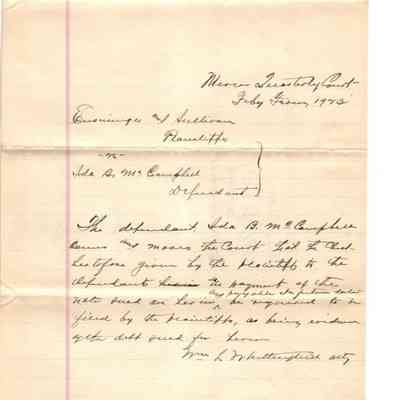 Mercer Quarterly Court
Feby Term, 1923
& Sullivan
Plaintiffs
vs
Ida B. McCampbell
Defendant
The defendant Ida B. McCampbell
comes and moves the Court that the
heretofore given by the plaintiffs to the
defendant the payment of the
note sued on herein be required to be
filed by the plaintiffs, as being evidence
of the debt sued for herein
Wm L Atty